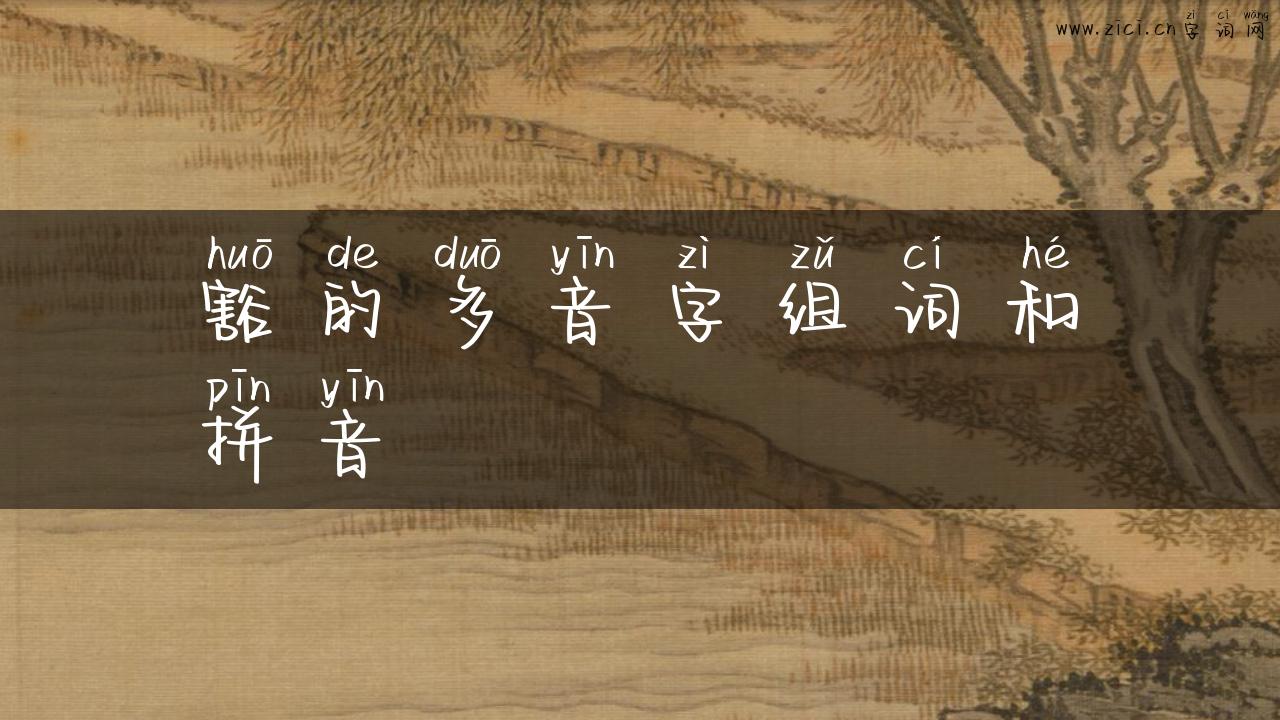 zì cí wǎng
www.zici.cn字词网
huō de duō yīn zì zǔ cí hé
豁的多音字组词和
pīn yīn
拼音